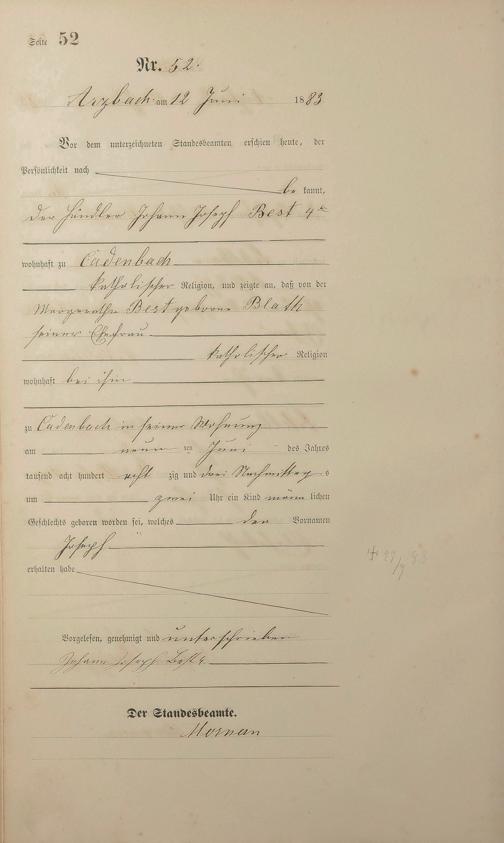 Seite 52
Nr. 52.
Arzbach am 12 Juni 1883
Vor dem unterzeichneten Standesbeamten erschien heute, der
Persönlichkeit nach
be kannt,
der Händler Johann Joseph Best 4r
wohnhaft zu Cadenbach
katholischer Religion, und zeigte an, daß von der
Margaretha Best geborene Blath
seiner Ehefrau
katholischer Religion
wohnhaft bei ihm
zu Cadenbach in seiner Wohnung
am neun ten Juni des Jahres
tausend acht hundert acht zig und drei Nachmittag s
um zwei Uhr ein Kind männ lichen
Geschlechts geboren worden sei, welches den Vornamen
Joseph
erhalten habe
Vorgelesen, genehmigt und unterschrieben
Johann Joseph Best 4.
Der Standesbeamte.